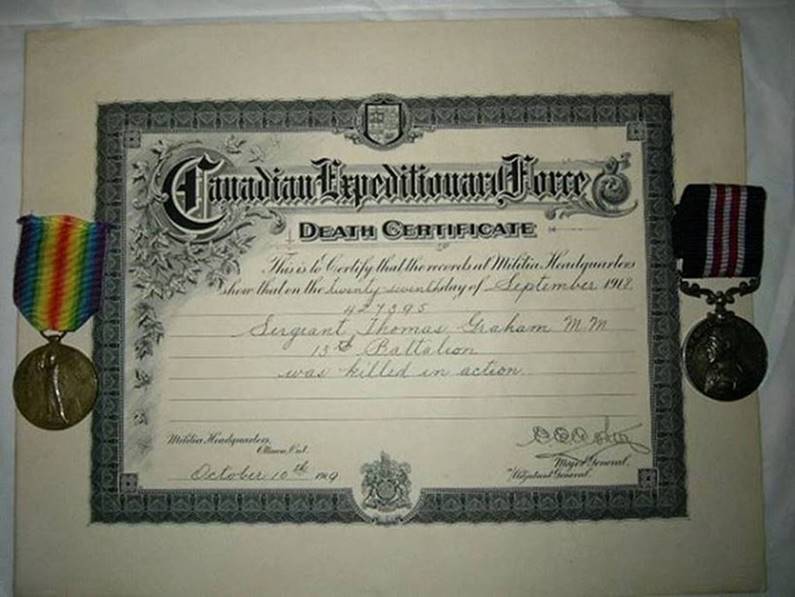 Canadian Expeditionary Force
DEATH CERTIFICATE
This is to Certify that the records at Militia Headquarters
show that on the twenty seventh day of September 1918
427395
Sergeant Thomas Graham M.M
13th Battalion
was killed in action.
Militia Headquarters,
Ottawa, Ont.
October 10th 1919
Major General,
Adjutant General.